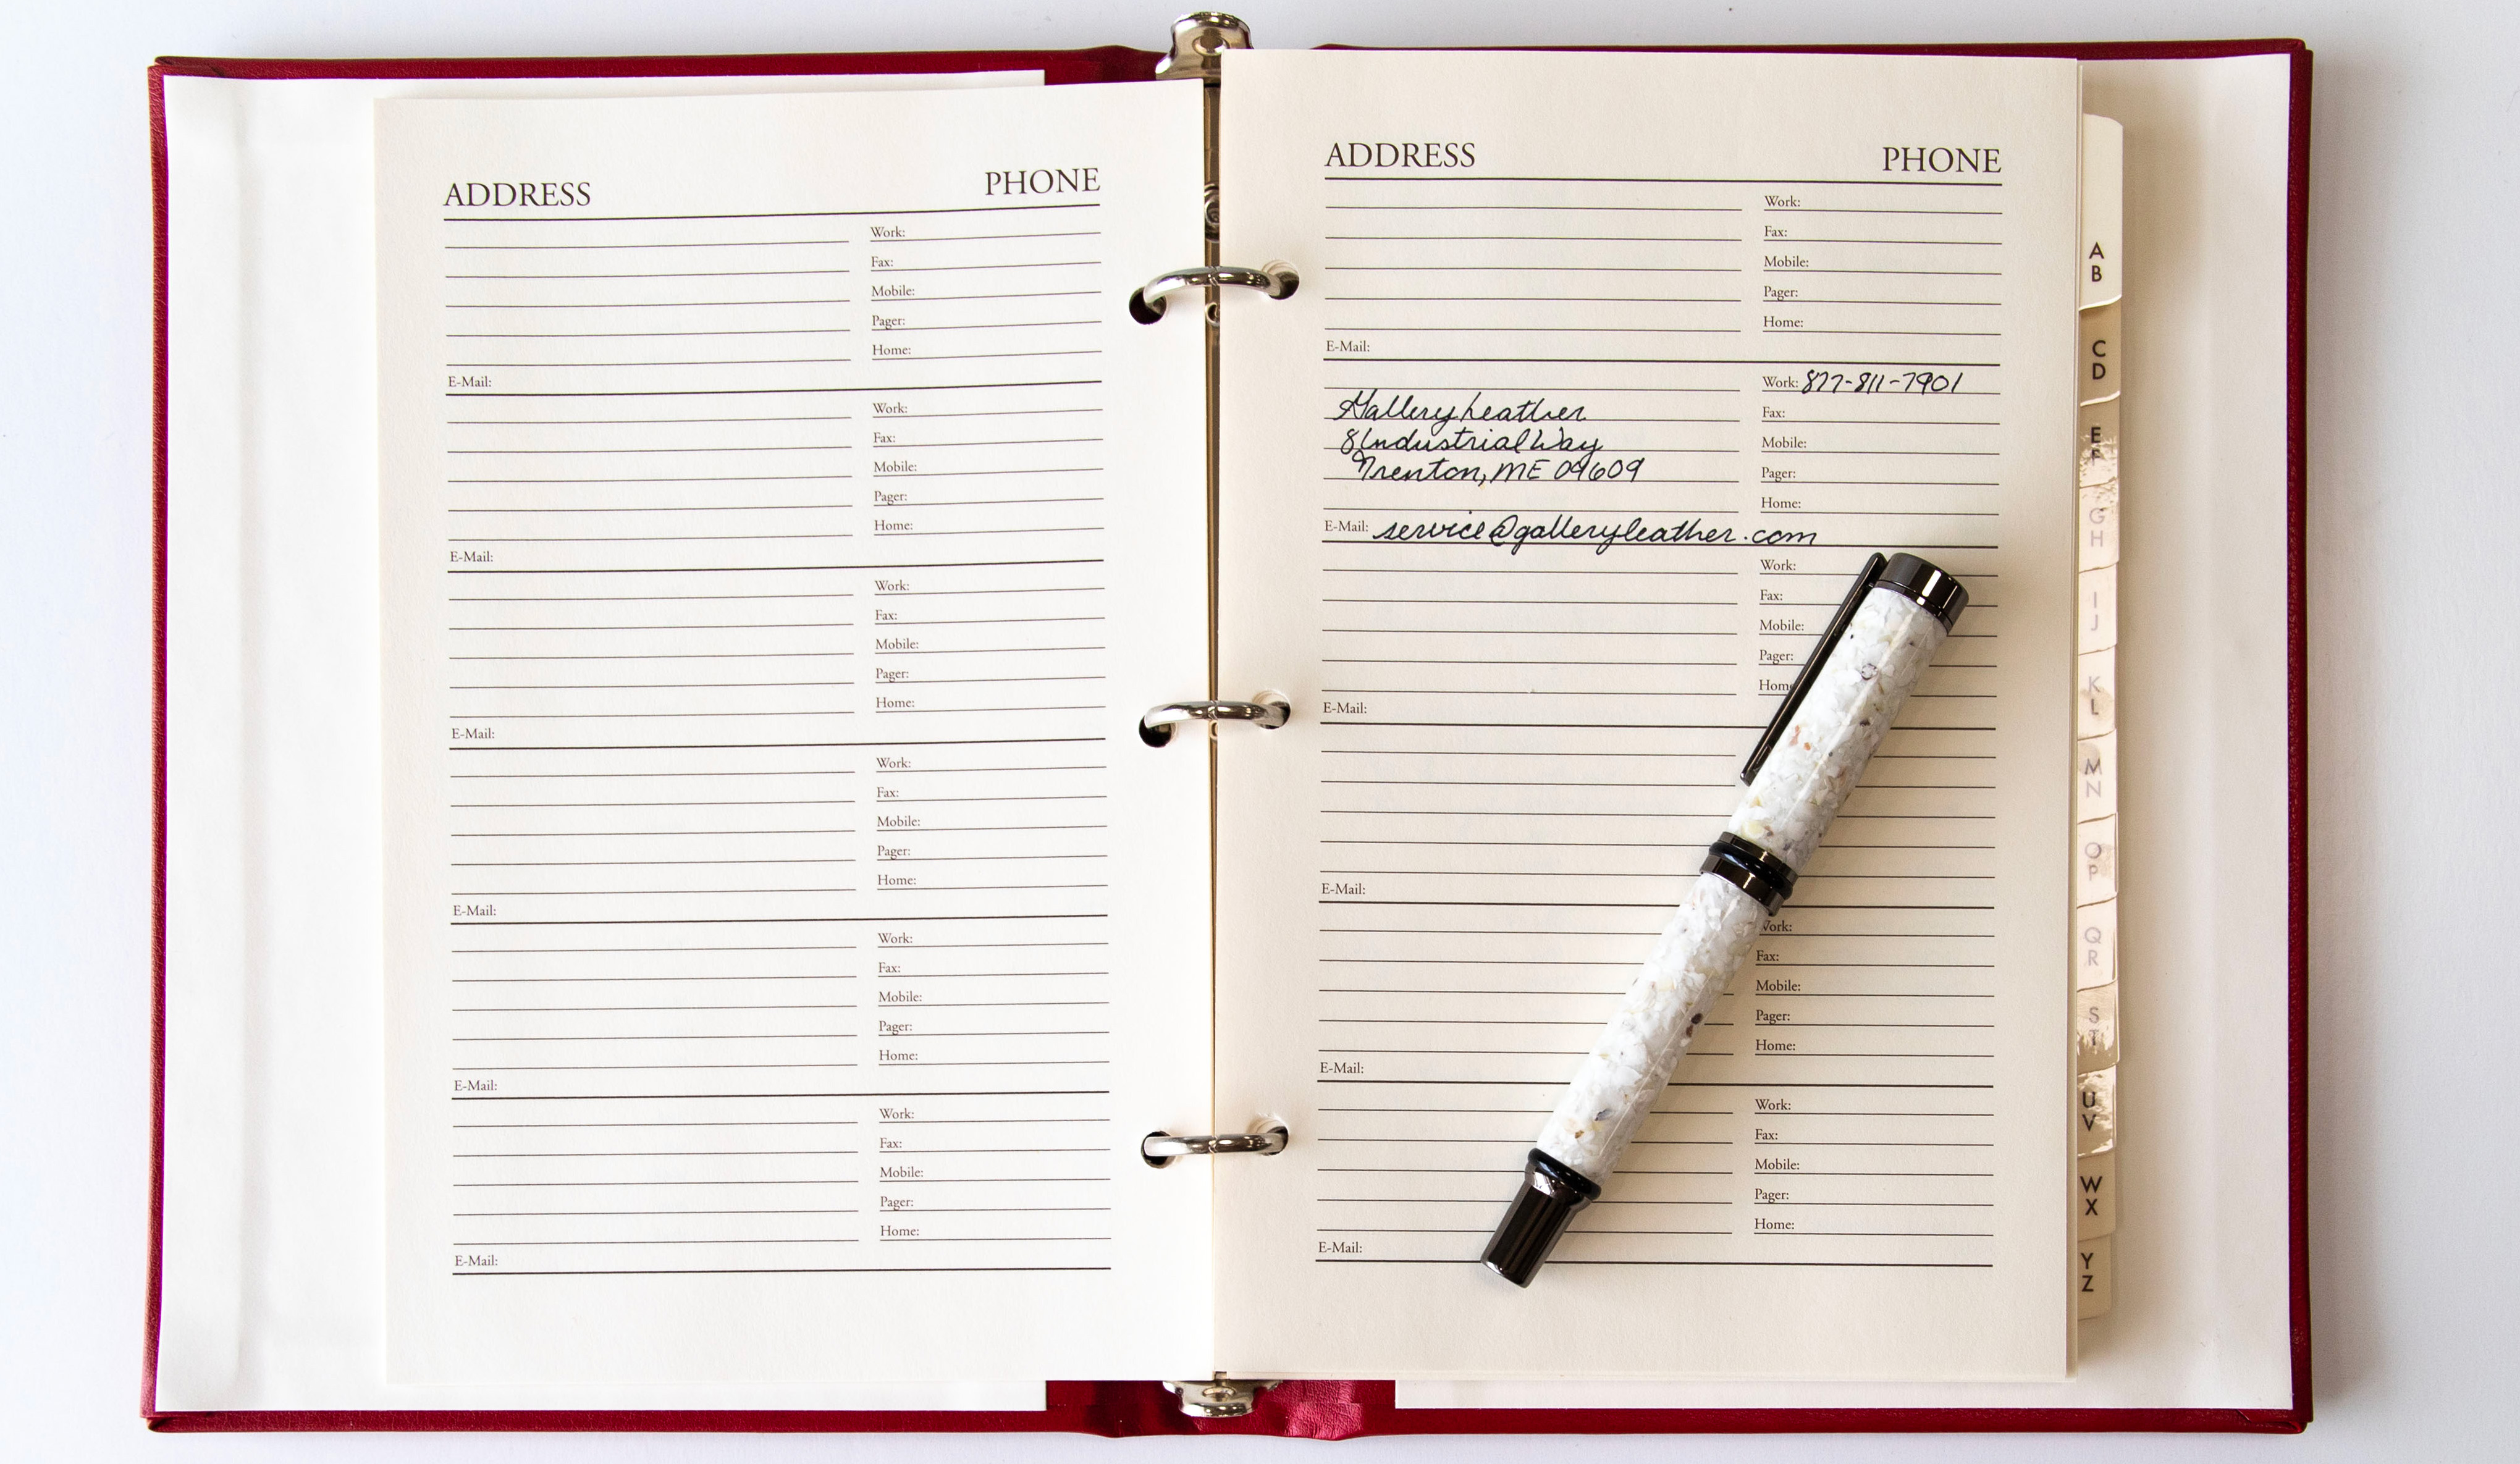 ADDRESS PHONE
Work:
Fax:
Mobile:
Pager:
Home:
E-Mail:
Work:
Fax:
Mobile:
Pager:
Home:
E-Mail:
Work:
Fax:
Mobile:
Pager:
Home:
E-Mail:
Work:
Fax:
Mobile:
Pager:
Home:
E-Mail:
Work:
Fax:
Mobile:
Pager:
Home:
E-Mail:
Work:
Fax:
Mobile:
Pager:
Home:
E-Mail:
ADDRESS PHONE
Work:
Fax:
Mobile:
Pager:
Home:
E-Mail:
Work: 877-811-7901
Gallery Leather Fax:
8 Industrial Way Mobile:
Trenton, ME 04609 Pager:
Home:
E-Mail: service@galleryleather.com
Work:
Fax:
Mobile:
Pager:
Home
E-Mail:
E-Mail:
Work:
Fax:
Mobile:
Pager:
Home:
E-Mail:
Work:
Fax:
Mobile:
Pager:
Home:
E-Mail:
A
B
C
D
E
F
G
H
I
J
K
L
M
N
O
P
Q
R
S
T
U
V
W
X
Y
Z